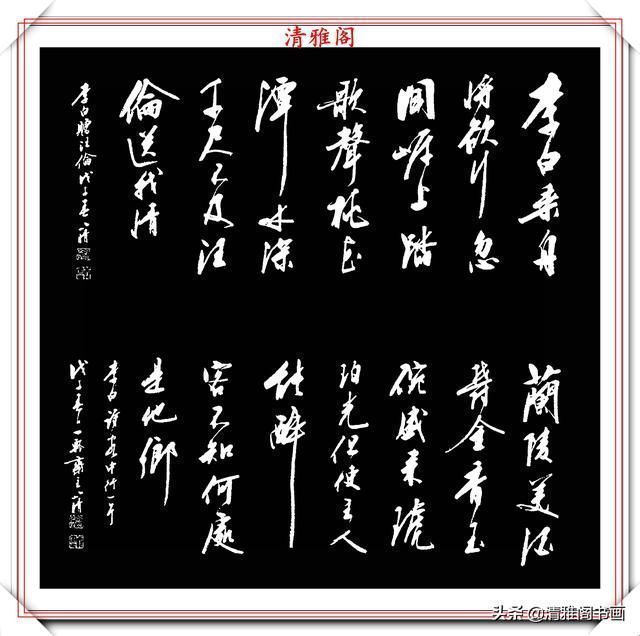 清雅阁
李白乘舟
將欲行忽
聞岸上踏
歌聲桃花
潭水深
千尺不及汪
倫送我情
李白贈汪倫戊子春
蘭陵美酒
鬱金香玉
碗盛來琥
珀光但使主人
能醉
客不知何處
是他鄉
李白詩客中行一首
戊子春
头条 @清雅阁书画